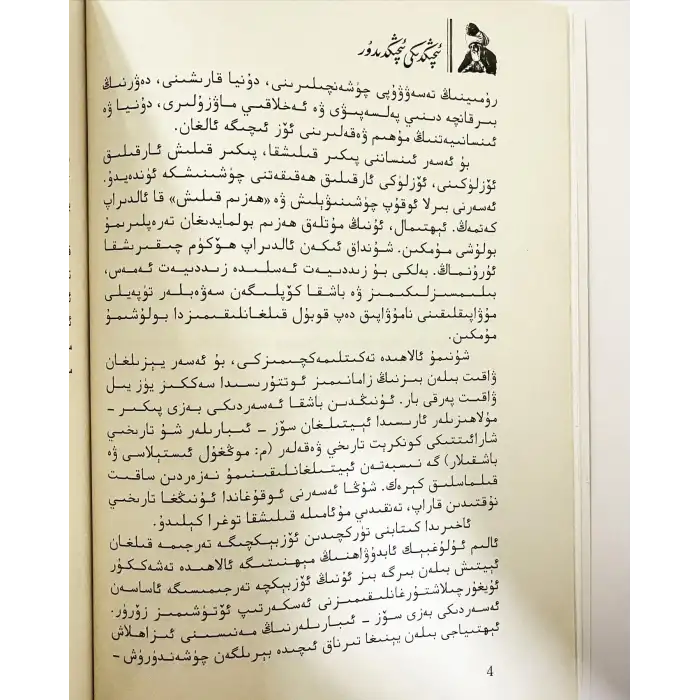 ئىچىڭدىكى ئىچىڭدىدۇر
رۇمىينىڭ تەسەۋۋۇپى چۈشەنچىلىرىنى، دۇنيا قارىشىنى، دەۋرنىڭ
بىرقانچە دىنىي پەلسەپىۋى ۋە ئەخلاقىي ماۋزۇلىرى، دۇنيا ۋە
ئىنسانىيەتنىڭ مۇھىم ۋەقەلىرىنى ئۆز ئىچىگە ئالغان.
بۇ ئەسەر ئىنساننى پىكىر قىلىشقا، پىكىر قىلىش ئارقىلىق
ئۆزلۈكىنى، ئۆزلۈكى ئارقىلىق ھەقىقەتنى چۈشىنىشكە ئۈندەيدۇ.
ئەسەرنى بىرلا ئوقۇپ چۈشىنىۋېلىش ۋە «ھەزىم قىلىش» قا ئالدىراپ
كەتمەڭ. ئېھتىمال، ئۇنىڭ مۇتلەق ھەزىم بولمايدىغان تەرەپلىرىمۇ
بولۇشى مۇمكىن. شۇنداق ئىكەن ئالدىراپ ھۆكۈم چىقىرىشقا
ئۇرۇنماڭ. بەلكى بۇ زىددىيەت ئەسلىدە زىددىيەت ئەمەس،
بىلىمسىزلىكىمىز ۋە باشقا كۆپلىگەن سەۋەبلەر تۈپەيلى
مۇۋاپىقلىقىنى نامۇۋاپىق دەپ قوبۇل قىلغانلىقىمىزدا بولۇشىمۇ
مۇمكىن.
شۇنىمۇ ئالاھىدە تەكىتلىمەكچىمىزكى، بۇ ئەسەر يېزىلغان
ۋاقىت بىلەن بىزنىڭ زامانىمىز ئوتتۇرىسىدا سەككىز يۈز يىل
ۋاقىت پەرقى بار. ئۇنىڭدىن باشقا ئەسەردىكى بەزى پىكىر –
مۇلاھىزىلەر ئارىسىدا ئېيتىلغان سۆز – ئىبارىلەر شۇ تارىخىي
شارائىتتىكى كونكرېت تارىخى ۋەقەلەر (م: موڭغۇل ئىستېلاسى ۋە
باشقىلار) گە نىسبەتەن ئېيتىلغانلىقىنىمۇ نەزەردىن ساقىت
قىلماسلىق كېرەك. شۇڭا ئەسەرنى ئوقۇغاندا ئۇنىڭغا تارىخىي
نۇقتىدىن قاراپ، تەنقىدىي مۇئامىلە قىلىشقا توغرا كېلىدۇ.
ئاخىرىدا كىتابنى تۈركچىدىن ئۆزبېكچىگە تەرجىمە قىلغان
ئالىم ئۇلۇغبېك ئابدۇۋاھنىڭ مېھنىتىگە ئالاھىدە تەشەككۈر
ئېيتىش بىلەن بىرگە بىز ئۇنىڭ ئۆزبېكچە تەرجىمىسىگە ئاساسەن
ئۇيغۇرچىلاشتۇرغانلىقىمىزنى ئەسكەرتىپ ئۆتۈشىمىز زۆرۈر.
ئەسەردىكى بەزى سۆز – ئىبارىلەرنىڭ مەنىسىنى ئىزاھلاش
ئېھتىياجى بىلەن يېنىغا تىرناق ئىچىدە بېرىلگەن چۈشەندۈرۈش –
4